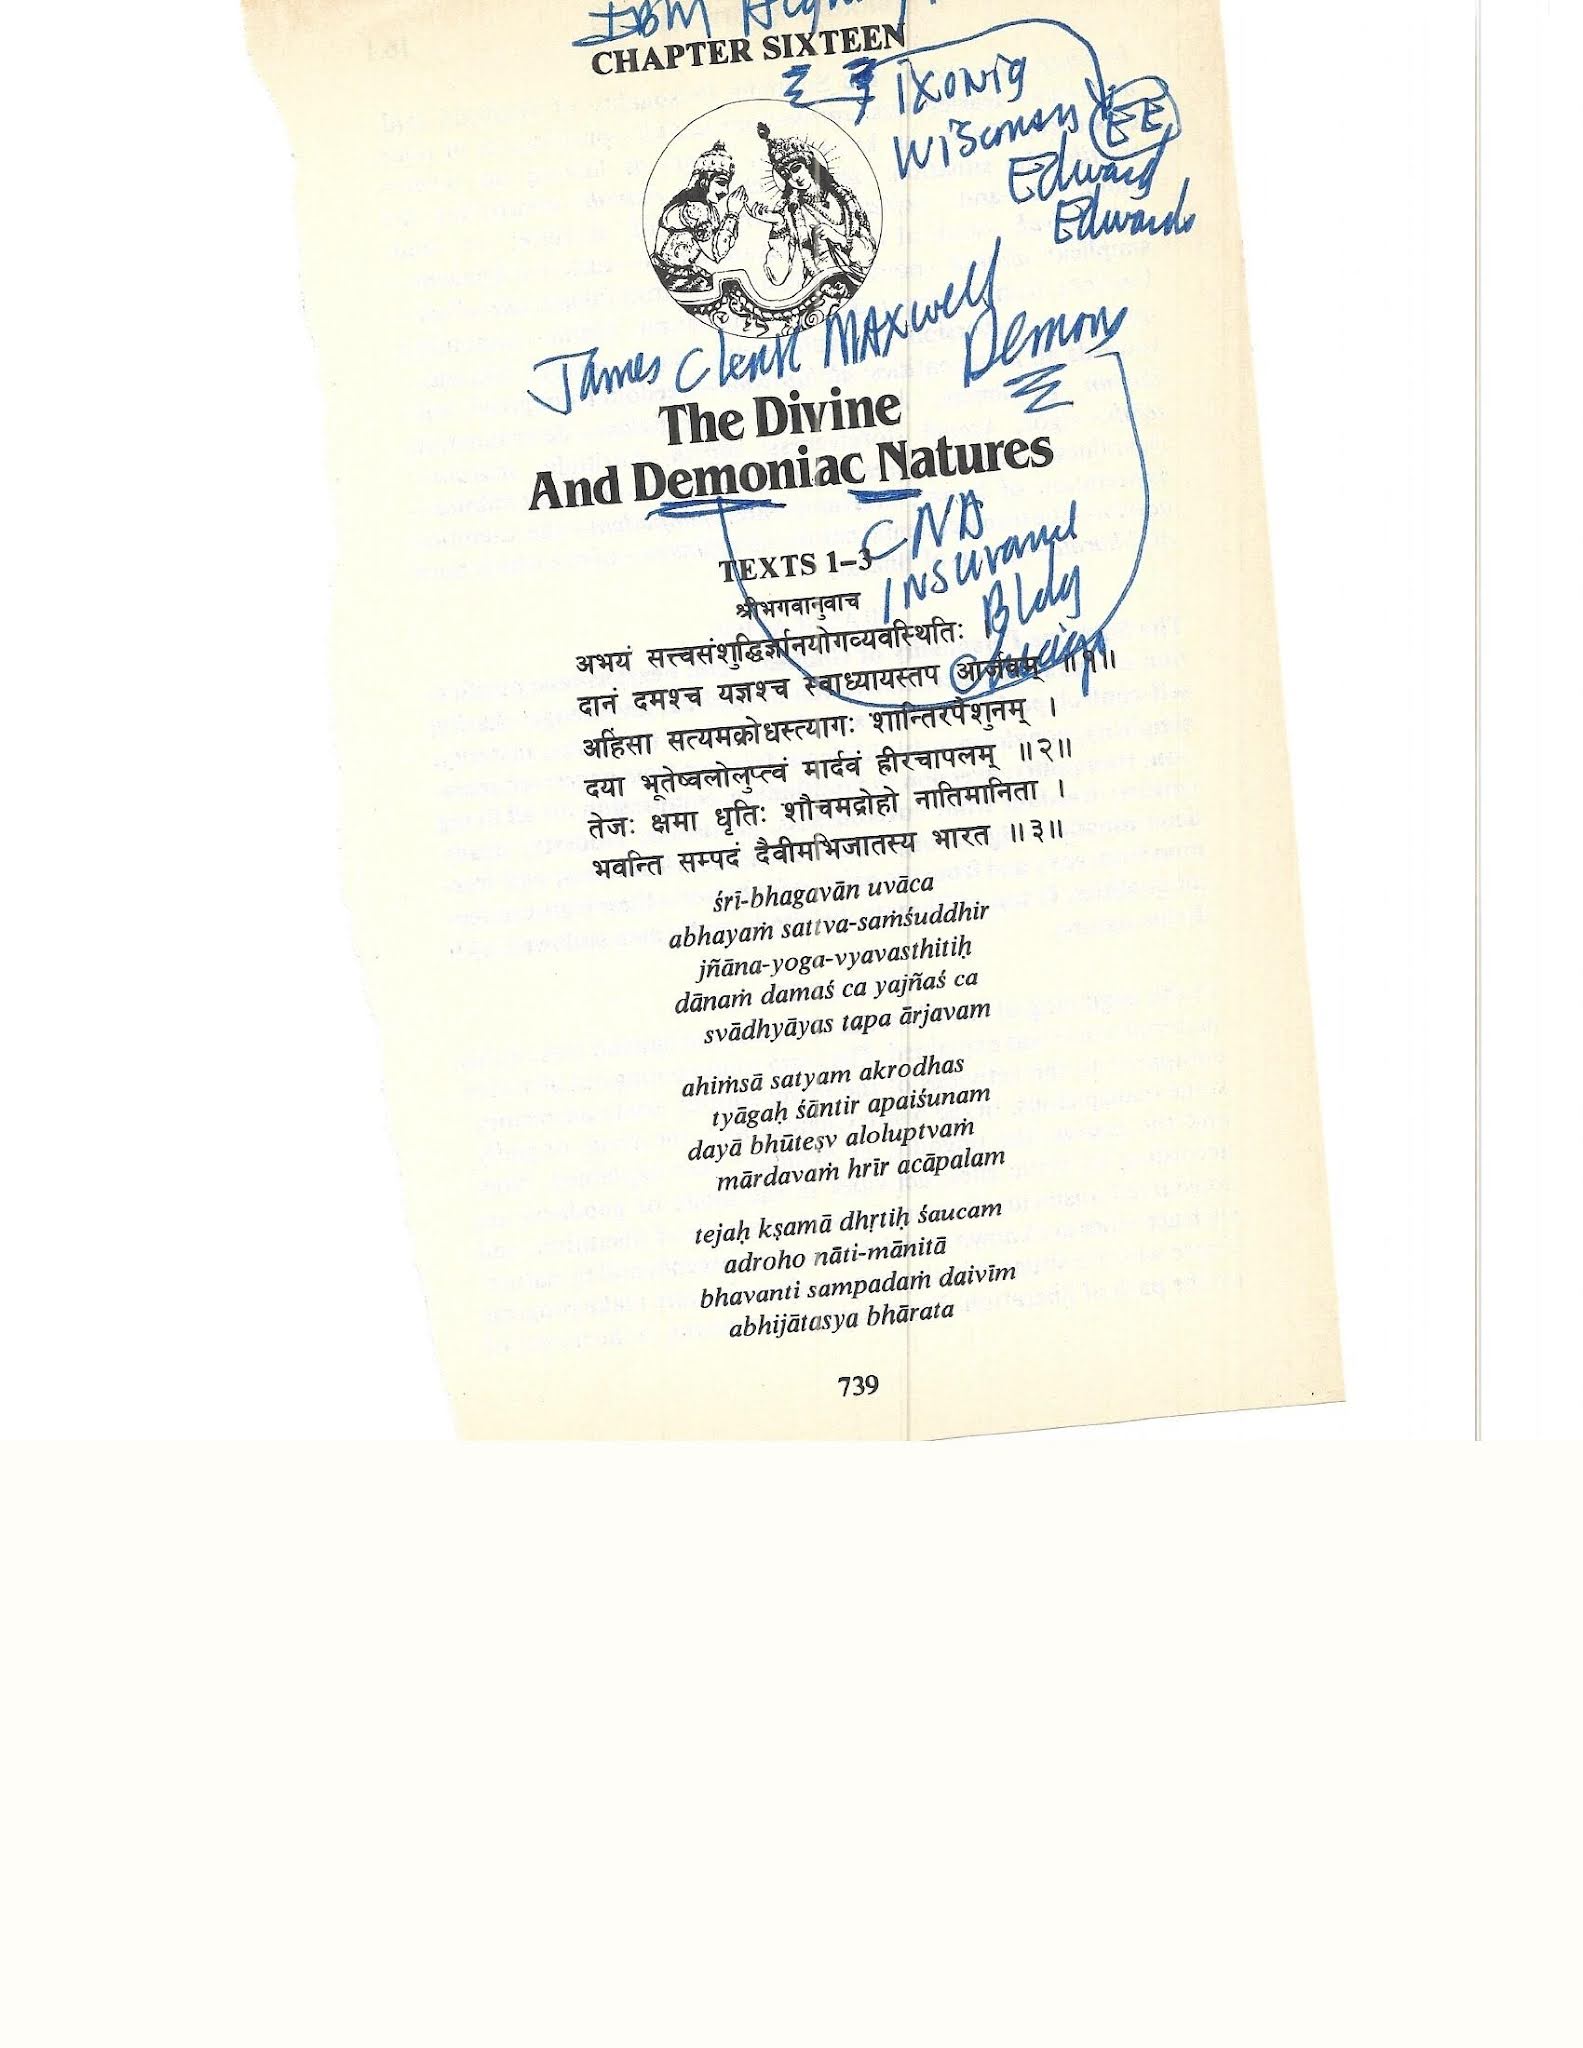 IBM
CHAPTER SIXTEEN
IXONIA
Wisconsin EE
Edward
Edwards
James Clerk MAXwell
Demons
The Divine
And Demoniac Natures
CNA
TEXTS 1–3
INSURANCE
श्रीभगवानुवाच
Bldg
अभयं सत्त्वसंशुद्धिर्ज्ञानयोगव्यवस्थितिः
Chicago
दानं दमश्च यज्ञश्च स्वाध्यायस्तप आर्जवम् ॥१॥
अहिंसा सत्यमक्रोधस्त्यागः शान्तिरपैशुनम् ।
दया भूतेष्वलोलुप्त्वं मार्दवं ह्रीरचापलम् ॥२॥
तेजः क्षमा धृतिः शौचमद्रोहो नातिमानिता ।
भवन्ति सम्पदं दैवीमभिजातस्य भारत ॥३॥
śrī-bhagavān uvāca
abhayaṁ sattva-saṁśuddhir
jñāna-yoga-vyavasthitiḥ
dānaṁ damaś ca yajñaś ca
svādhyāyas tapa ārjavam
ahiṁsā satyam akrodhas
tyāgaḥ śāntir apaiśunam
dayā bhūteṣv aloluptvaṁ
mārdavaṁ hrīr acāpalam
tejaḥ kṣamā dhṛtiḥ śaucam
adroho nāti-mānitā
bhavanti sampadaṁ daivīm
abhijātasya bhārata
739